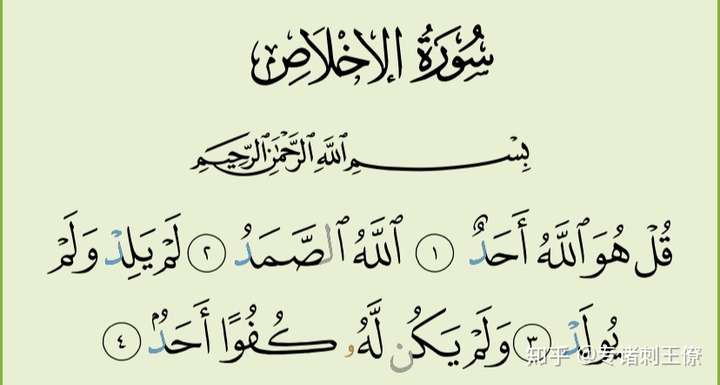 سُورَةُ الإِخْلَاصِ
بِسْمِ ٱللَّهِ ٱلرَّحْمَٰنِ ٱلرَّحِيمِ
قُلْ هُوَ ٱللَّهُ أَحَدٌ ١ ٱللَّهُ ٱلصَّمَدُ ٢ لَمْ يَلِدْ وَلَمْ
يُولَدْ ٣ وَلَمْ يَكُن لَّهُۥ كُفُوًا أَحَدٌۢ ٤
知乎 @专诸刺王僚